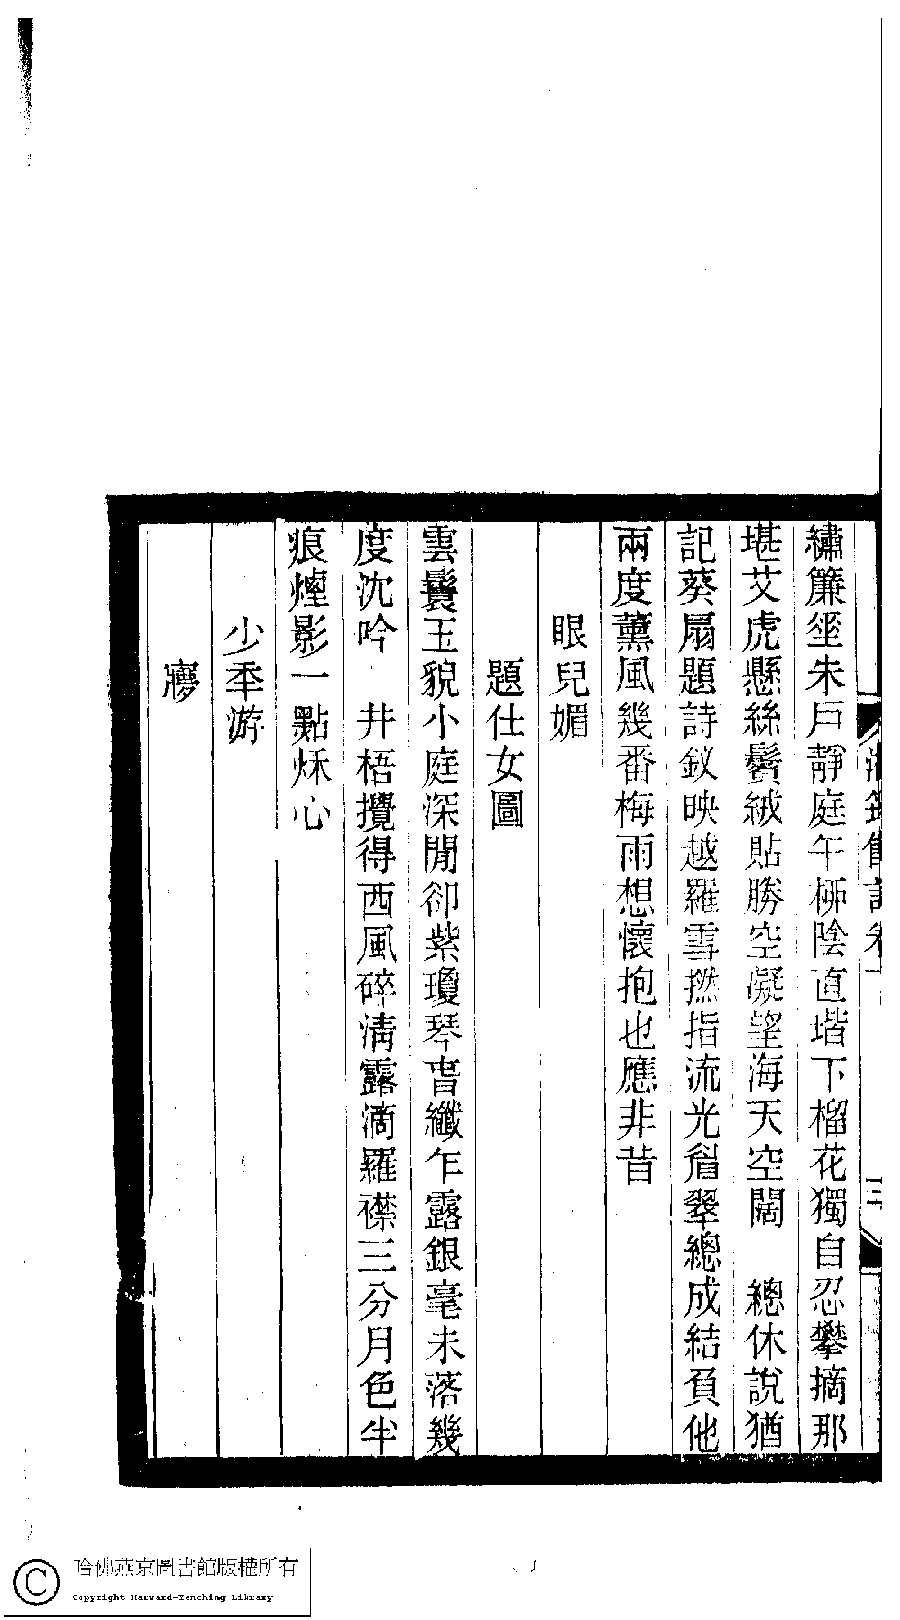 繡簾垂朱戶靜庭午柳陰直堦下榴花獨自忍攀摘那
堪艾虎懸絲鬢絨貼勝空凝望海天空闊　總休說猶
記葵扇題詩釵映越羅雪撚指流光眉翠總成結負他
兩度薰風幾番梅雨想懷抱也應非昔
眼兒媚
題仕女圖
雲鬟玉貌小庭深閒卻紫瓊琴香纖乍露銀毫未落幾
度沈吟　井梧攪得西風碎清露滴羅襟三分月色半
痕煙影一點秌心
少秊游
㝱
哈佛燕京圖書館版權所有
Copyright Harvard-Yenching Library